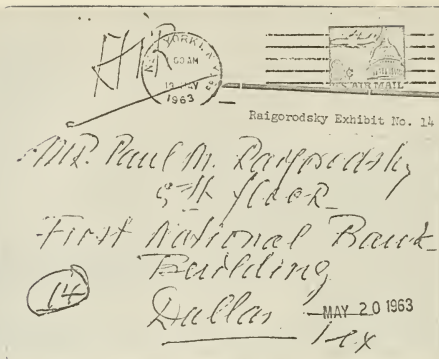 AIR
NEW YORK 1, N.Y.
AM
MAY
1963
U.S. AIR MAIL
Raigorodsky Exhibit No. 14
Mr. Paul M. Raigorodsky
5th floor
First National Bank
Building
14
Dallas
MAY 20 1963
Tex